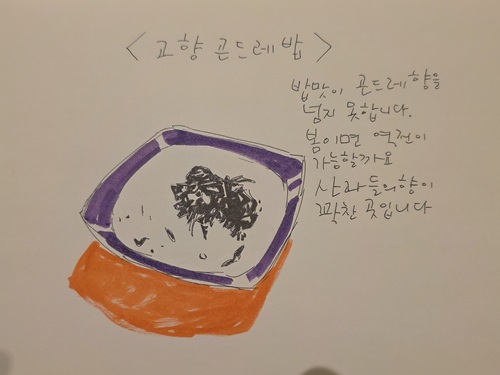 <고향 곤드레밥>
밥맛이 곤드레향을
넘지 못합니다.
봄이면 역전이
가능할까요
산과들의향이
꽉찬 곳입니다